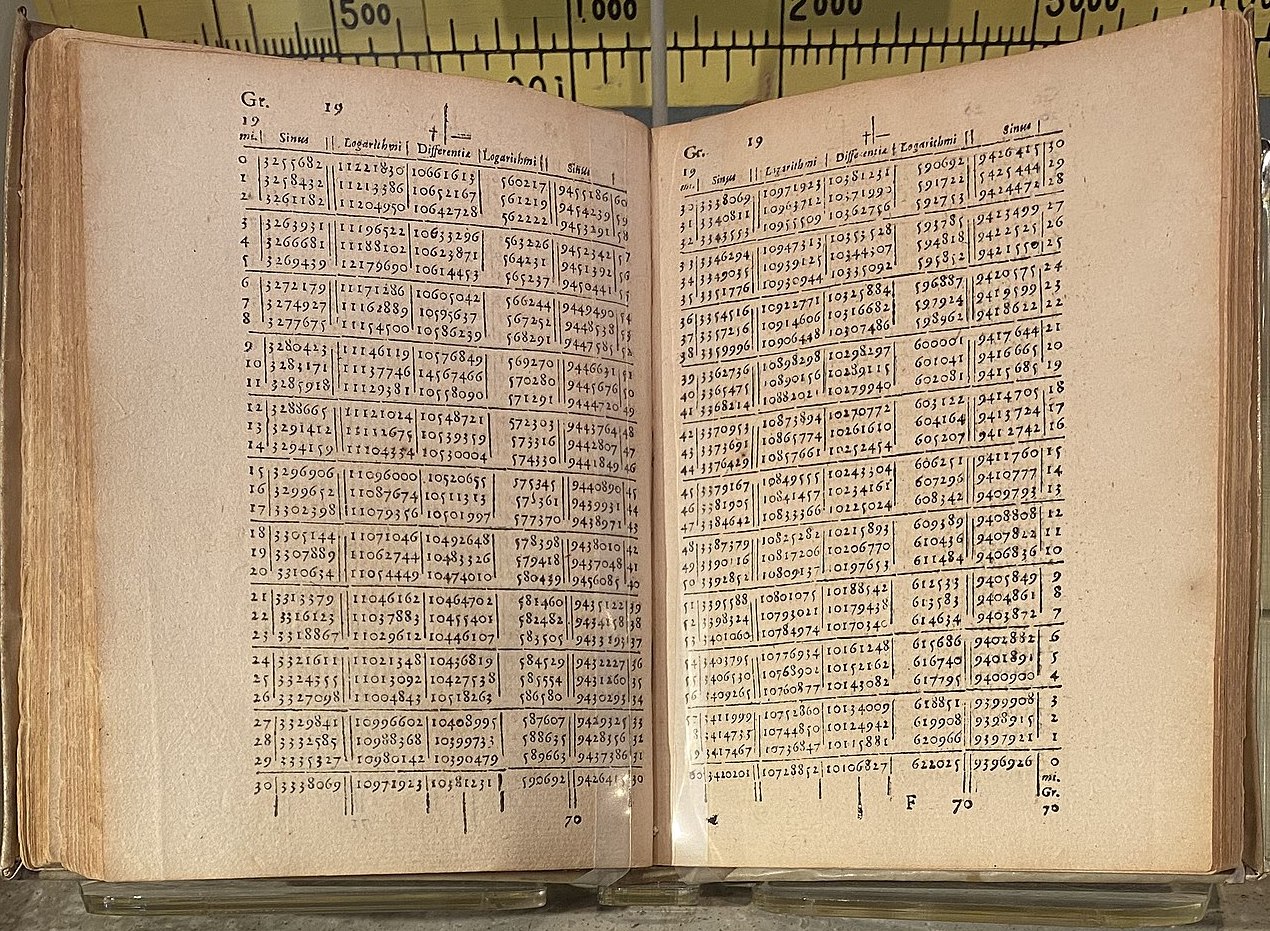 500 1000 2000 3000
Gr. 19
19
mi. Sinus Logarithmi Differentiæ Logarithmi Sinus
0 3255682 11221830 10661613 560217 9455186 60
1 3258432 11213386 10652167 561219 9454239 59
2 3261182 11204950 10642728 562222 9453291 58
3 3263931 11196522 10633296 563226 9452342 57
4 3266681 11188102 10623871 564231 9451392 56
5 3269439 12179690 10614453 565237 9450441 55
6 3272179 11171286 10605042 566244 9449490 54
7 3274927 11162889 10595637 567252 9448538 53
8 3277675 11154500 10586239 568291 9447585 52
9 3280423 11146119 10576849 569270 9446631 51
10 3283171 11137746 14567466 570280 9445676 50
11 3285918 11129381 10558090 571291 9444720 49
12 3288665 11121024 10548721 572303 9443764 48
13 3291412 11112675 10539359 573316 9442807 47
14 3294159 11104334 10530004 574330 9441849 46
15 3296906 11096000 10520655 575345 9440890 45
16 3299652 11087674 10511313 575361 9439931 44
17 3302398 11079356 10501997 577370 9438971 43
18 3305144 11071046 10492648 578398 9438010 42
19 3307889 11062744 10483326 579418 9437048 41
20 3310634 11054449 10474010 580439 9456085 40
21 3313379 11046162 10464702 581460 9435122 39
22 3316123 11037883 10455401 582482 9434158 38
23 3318867 11029612 10446107 583505 9433193 37
24 3321611 11021348 10436819 584529 9432227 36
25 3324355 11013092 10427538 585554 9431260 35
26 3327098 11004843 10518263 586580 9430293 34
27 3329841 10996602 10408995 587607 9429325 33
28 3332585 10988368 10399733 588635 9428356 32
29 3335327 10980142 10390479 589663 9437386 31
30 3338069 10971923 10381231 590692 9426415 30
70
Gr. 19
19
mi. Sinus Logarithmi Differentiæ Logarithmi Sinus
30 3338069 10971923 10381231 590692 9426415 30
31 3340811 10963712 10371990 591722 9425444 29
32 3343553 10955509 10362756 592753 9424472 28
33 3346294 10947313 10353528 593785 9423499 27
34 3349035 10939125 10344307 594818 9422525 26
35 3351776 10930944 10335092 595852 9421550 25
36 3354516 10922771 10325884 596887 9420575 24
37 3357256 10914606 10316682 597924 9419599 23
38 3359996 10906448 10307486 598962 9418622 22
39 3362736 10898298 10298297 600001 9417644 21
40 3365475 10890156 10289115 601041 9416665 20
41 3368214 10882021 10279940 602081 9415685 19
42 3370953 10873894 10270772 603122 9414705 18
43 3373691 10865774 10261610 604164 9413724 17
44 3376429 10857661 10252454 605207 9412742 16
45 3379167 10849555 10243304 606251 9411760 15
46 3381905 10841457 10234161 607296 9410777 14
47 3384642 10833366 10225024 608342 9409793 13
48 3387379 10825282 10215893 609389 9408808 12
49 3390116 10817206 10206770 610436 9407822 11
50 3392852 10809137 10197653 611484 9406836 10
51 3395588 10801075 10188542 612533 9405849 9
52 3398324 10793021 10179438 613583 9404861 8
53 3401060 10784974 10170340 614634 9403872 7
54 3403795 10776934 10161248 615686 9402882 6
55 3406530 10768902 10152162 616740 9401891 5
56 3409265 10760877 10143082 617795 9400900 4
57 3411999 10752860 10134009 618851 9399908 3
8 3414733 10744850 10124942 619908 9398915 2
9 3417467 10736847 10115881 620966 9397921 1
60 3420201 10728852 10106827 622025 9396926 0
mi.
Gr.
F 70 70